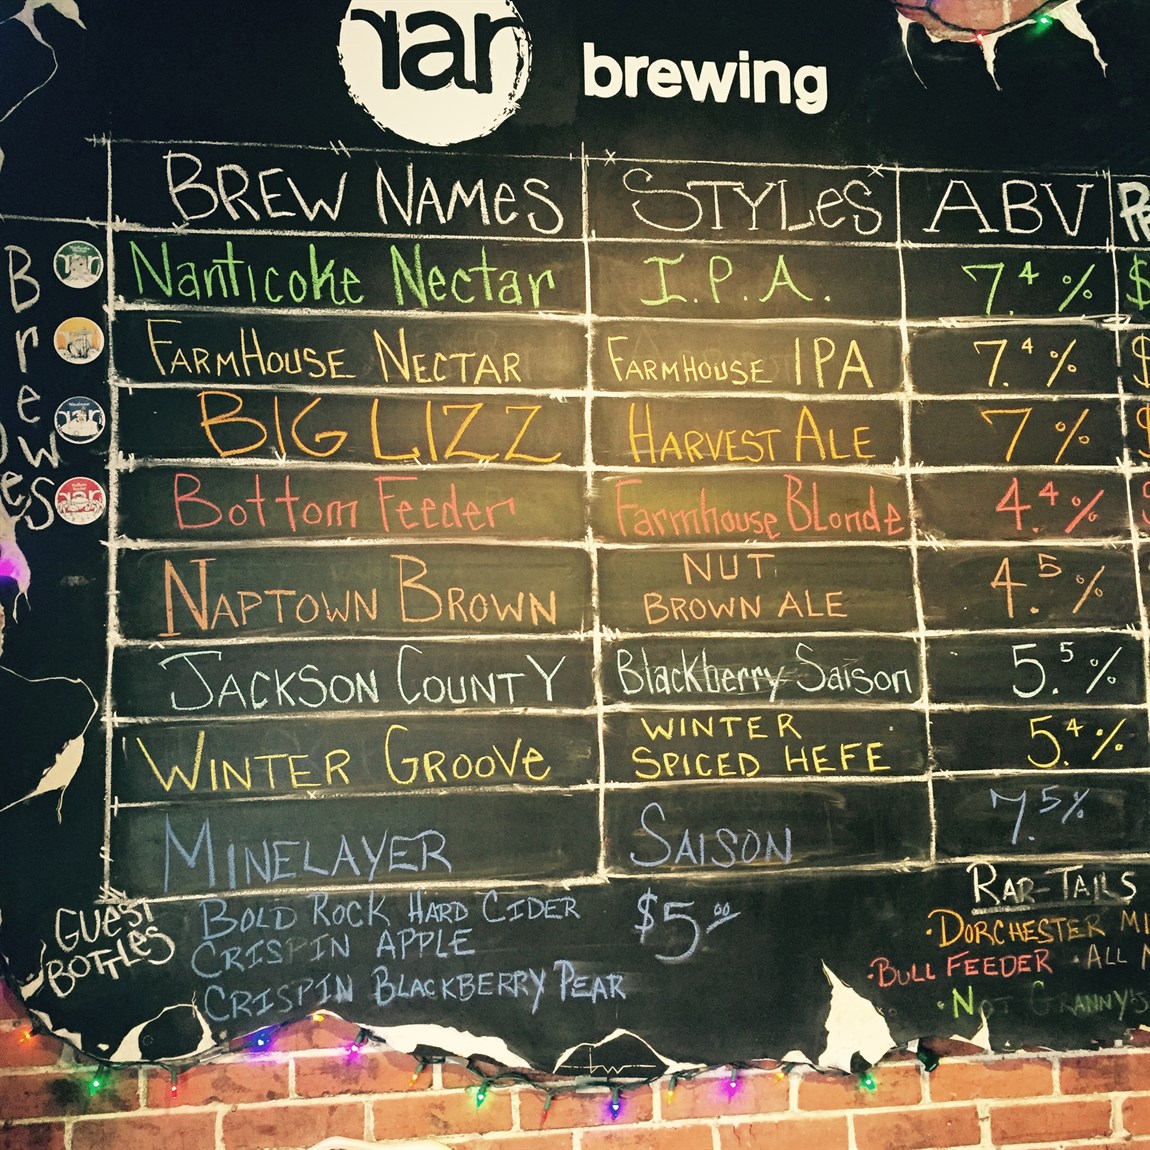 rar brewing
BREW NAMES STYLES ABV
Nanticoke Nectar I.P.A. 7.4% $
FARMHOUSE NECTAR FARMHOUSE IPA 7.4% $
BIG LIZZ HARVEST ALE 7% $
Bottom Feeder Farmhouse Blonde 4.4%
NAPTOWN BROWN NUT BROWN ALE 4.5%
JACKSON COUNTY Blackberry Saison 5.5%
WINTER GROOVE WINTER SPICED HEFE 5.4%
MINELAYER SAISON 7.5%
Brews
GUEST
BOTTLES
BOLD ROCK HARD CIDER $5.00
CRISPIN APPLE
CRISPIN BLACKBERRY PEAR
RAR-TAILS
·DORCHESTER
·BULL FEEDER ·ALL
·NOT GRANNY'S
tw